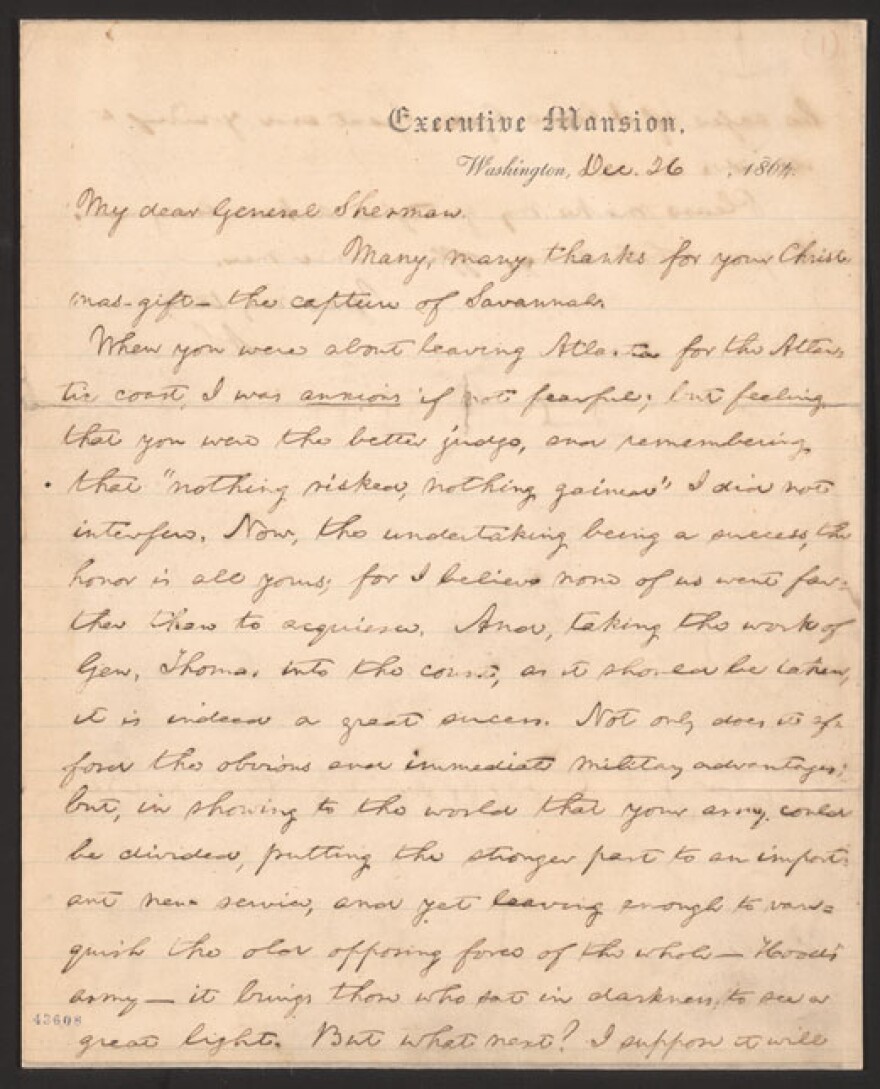 Executive Mansion,
Washington, Dec. 26, 1864.
My dear General Sherman.
Many, many, thanks for your Christ-
mas-gift — the capture of Savannah.
When you were about leaving Atlanta for the Atlan-
tic coast, I was anxious, if not fearful; but feeling
that you were the better judge, and remembering
that "nothing risked, nothing gained" I did not
interfere. Now, the undertaking being a success, the
honor is all yours; for I believe none of us went far-
ther than to acquiesce. And, taking the work of
Gen. Thomas into the count, as it should be taken,
it is indeed a great success. Not only does it af-
ford the obvious and immediate military advantages;
but, in showing to the world that your army could
be divided, putting the stronger part to an import-
ant new service, and yet leaving enough to van-
quish the old opposing force of the whole — Hood's
army — it brings those who sat in darkness, to see a
great light. But what next? I suppose it will
43608